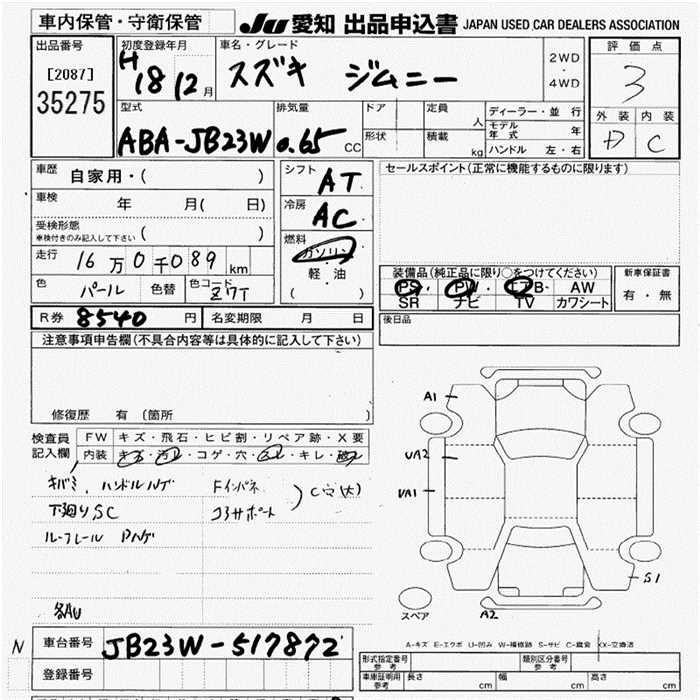 車内保管・守衛保管
JU 愛知 出品申込書 JAPAN USED CAR DEALERS ASSOCIATION
出品番号
[2087]
35275
初度登録年月
H 18 12 月
車名・グレード
スズキ ジムニー
2WD
・
4WD
評価点
3
外装 内装
D C
型式
ABA-JB23W
排気量
0.65 CC
ドア
形状
定員
人
積載
kg
ディーラー・並行
モデル年式 年
ハンドル 左・右
車歴
自家用・( )
車検
年 月( 日)
受検形態
車検付きのみ記入して下さい ( )
走行
16万0千089 km
色
パール
色替
色コード
Z7T
シフト
AT
冷房
AC
燃料
ガソリン
軽・油
( )
セールスポイント(正常に機能するものに限ります)
装備品(純正品に限り〇をつけてください)
PS・ PW・ エアB・ AW
SR ナビ TV カワシート
新車保証書
有・無
R券 8540 円
名変期限 月 日
後日品
注意事項申告欄(不具合内容等は具体的に記入して下さい)
修復歴 有 (箇所 )
検査員
記入欄
FW キズ・飛石・ヒビ割・リペア跡・X要
内装 キズ・汚れ・コゲ・穴・・キレ・
キバミ、ハンドルハゲ
下廻りSC
ルーフレール Pハゲ
各AU
Fインパネ
コアサポート
C穴(大)
A1
UA2
UA1
S1
スペア
A2
A-キズ E-エクボ U-凹み W-補修跡 S-サビ C-腐食 XX-交換済
N
車台番号
JB23W-517872
登録番号
形式指定番号
参考
類別区分番号
参考
車庫証明用
参考
長さ cm
幅 cm
高さ cm